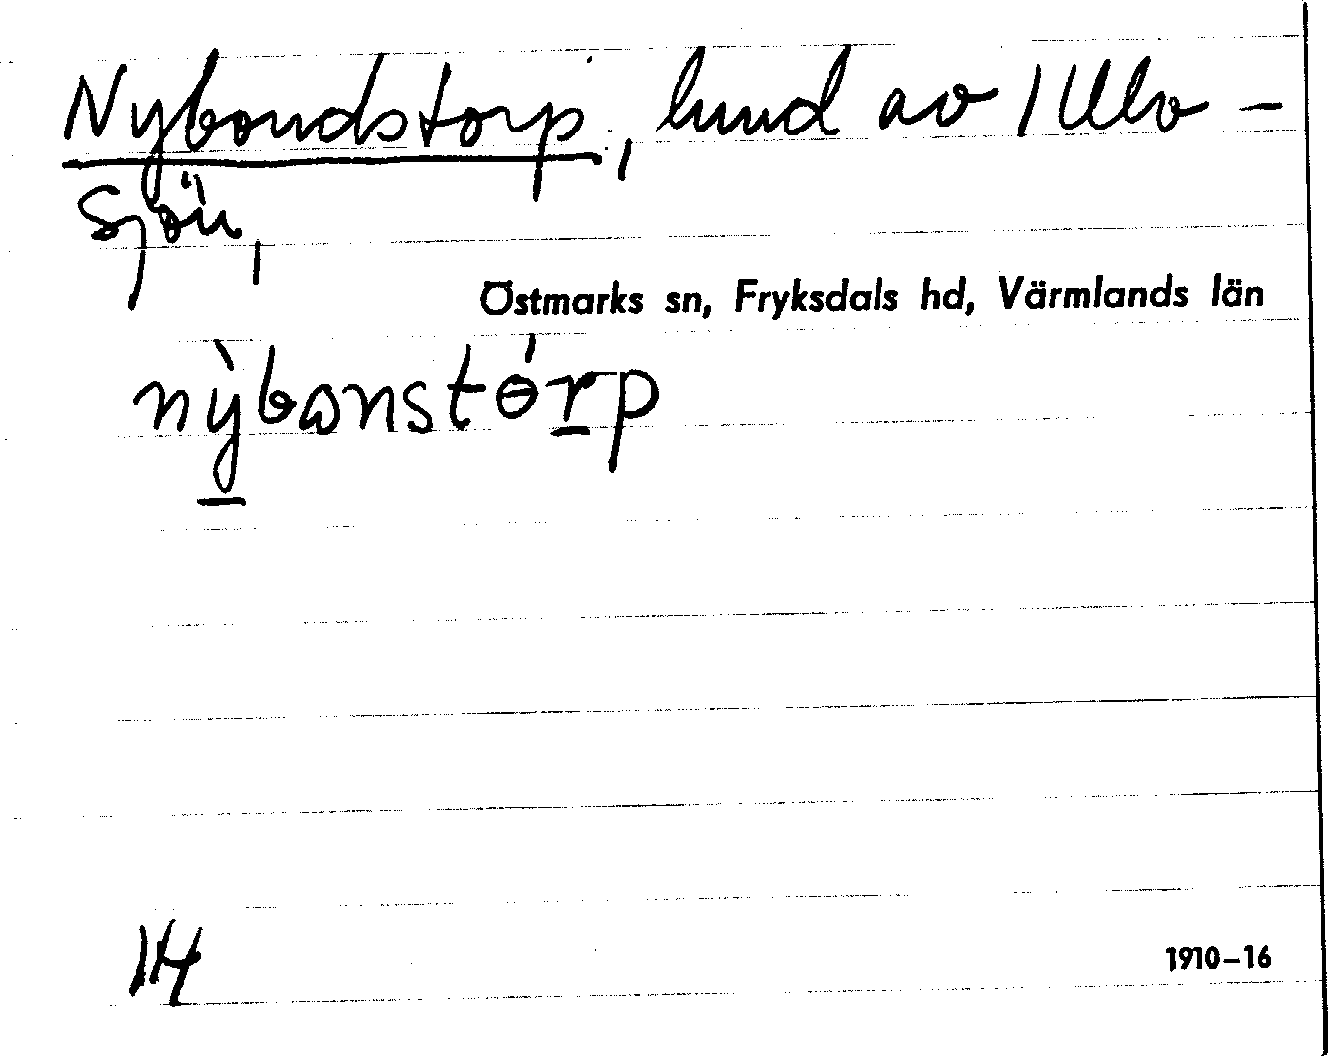 Nybondstorp, lund av 1 Ulv-
sjön,
Östmarks sn, Fryksdals hd, Värmlands län
nỳbɷnstɵ́rp
14
1910–16